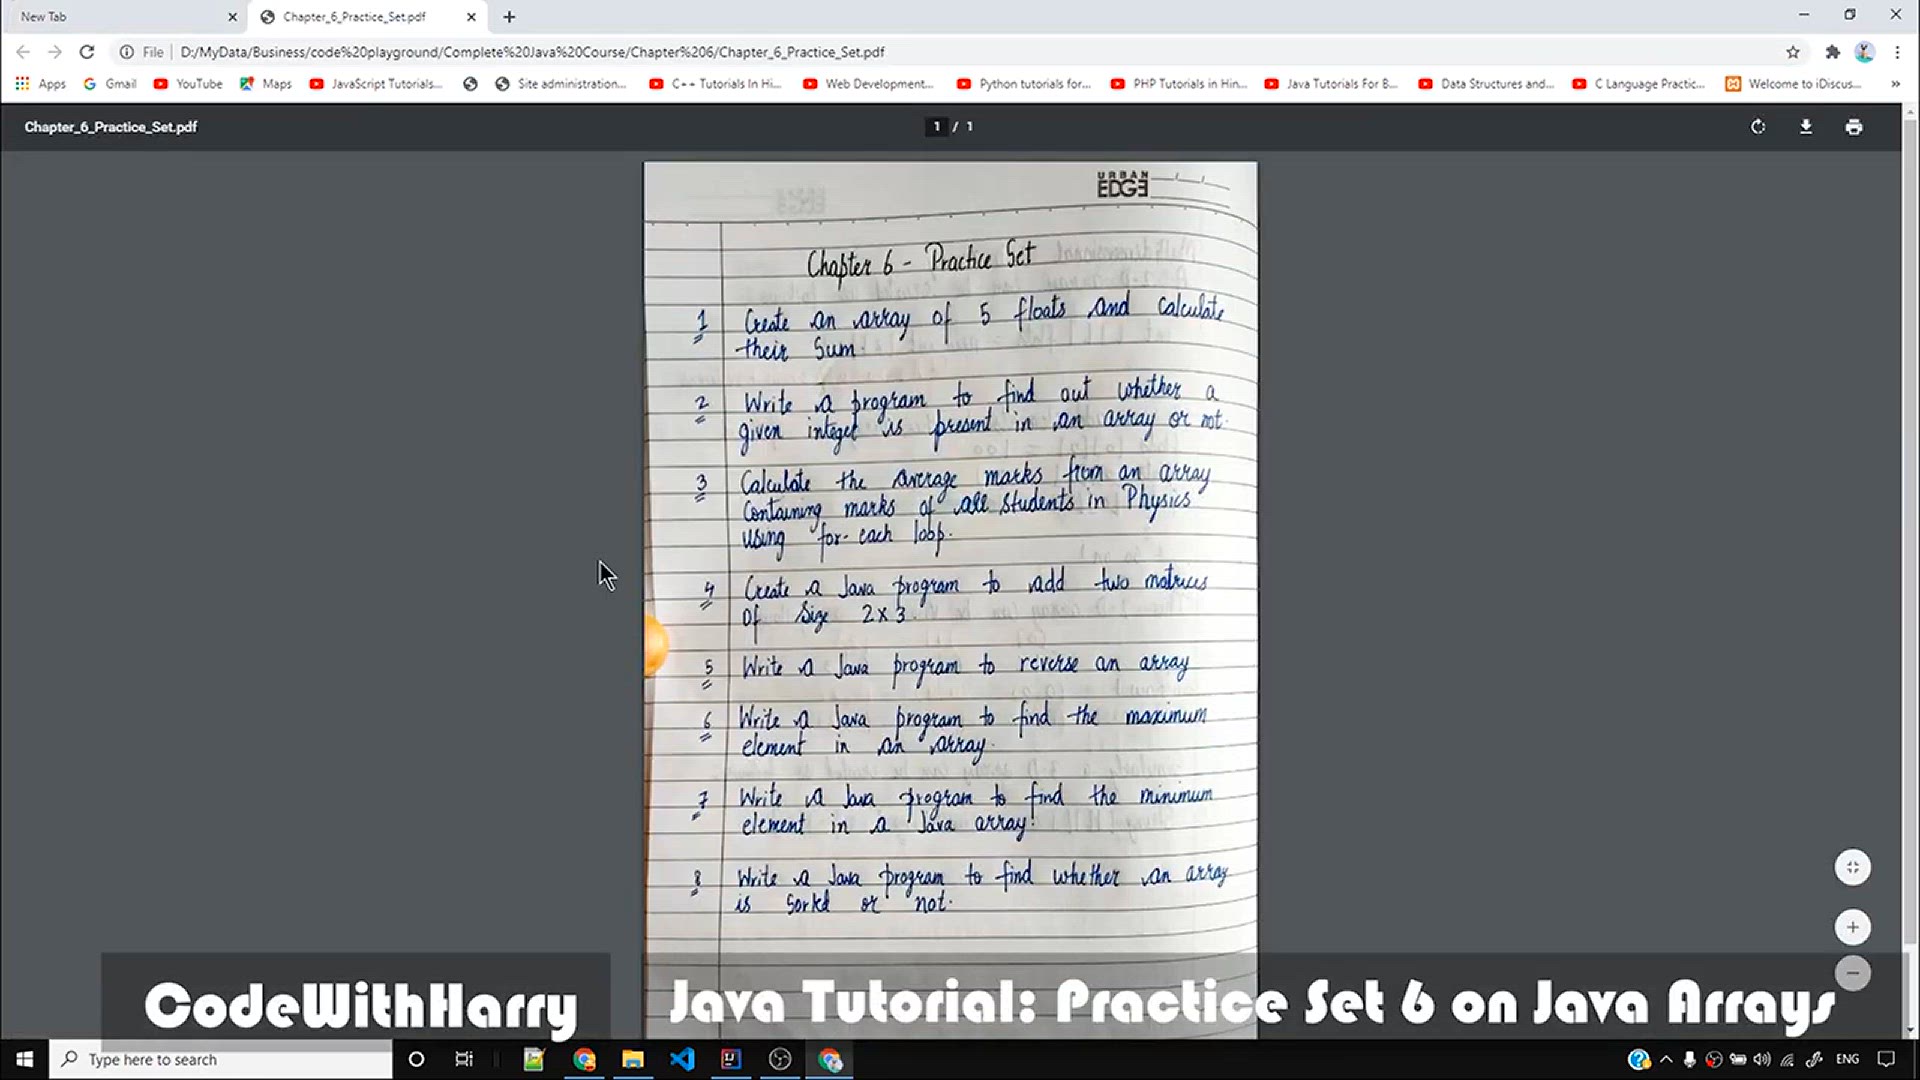 New Tab
Chapter_6_Practice_Set.pdf
File D:/MyData/Business/code%20playground/Complete%20Java%20Course/Chapter%206/Chapter_6_Practice_Set.pdf
Apps Gmail YouTube Maps JavaScript Tutorials... Site administration... C++ Tutorials In Hi... Web Development... Python tutorials for... PHP Tutorials in Hin... Java Tutorials For B... Data Structures and... C Language Practic... Welcome to iDiscus... »
Chapter_6_Practice_Set.pdf 1 / 1
URBAN
EDGE
Chapter 6 - Practice Set
1 Create an array of 5 floats and calculate
their sum.
2 Write a program to find out whether a
given integer is present in an array or not.
3 Calculate the average marks from an array
containing marks of all students in Physics
using for-each loop.
4 Create a Java program to add two matrices
of size 2x3.
5 Write a Java program to reverse an array
6 Write a Java program to find the maximum
element in an array.
7 Write a Java program to find the minimum
element in a Java array!
8 Write a Java program to find whether an array
is sorted or not.
CodeWithHarry
Java Tutorial: Practice Set 6 on Java Arrays
Type here to search
ENG